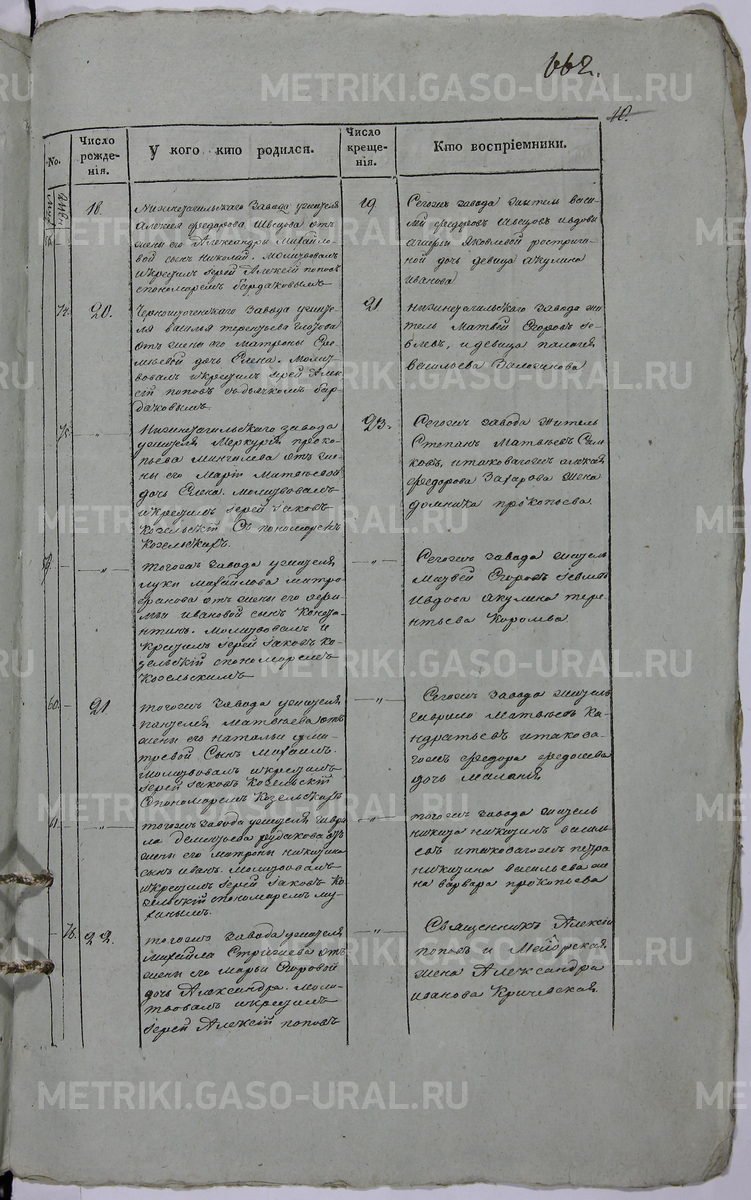 662.
40.
No.
Число рожде-нія.
У кого кто родился.
Число креще-нія.
Кто воспріемники.
18.
Нижнетагильскаго Завода жителя
Алексея Федорова Швецова отъ
жены его Александры Михайло-
вой сынъ Николай. молитвовалъ
и крестилъ Іерей Алексій поповъ
спономаремъ Бурдаковымъ
19
Сегожъ завода житель васи-
лей Федоровъ Швецовъ ивдовы
Яковлевой
дочь девица акулина
иванова
74.
20.
Черноисточенскаго Завода жите-
ля василья терентьева
отъ жены его Матроны
дочь Елена. молит-
вовалъ и крестилъ Іерей Алек-
сій поповъ съдьячкомъ Бур-
даковымъ.
21
нижнетагильскаго Завода жи-
тель Матвей Егоровъ
и девица
васильева
75.
"
Нижнетагильскаго завода
жителя Меркурія проко-
пьева отъ же-
ны его Маріи Матвеевой
дочь Елена. молитвовалъ
и крестилъ Іерей Іаковъ
Козельскій Съ пономаремъ
Козельскихъ.
23.
Сегожъ завода житель
Степанъ Матвеевъ
и таковагожъ алексея
Федорова Захарова жена
домника прокопьева
"
тогожъ Завода жителя
луки михайлова митро-
фанова отъ жены его
ивановой сынъ Констан-
тинъ. молитвовалъ и
крестилъ Іерей Іаковъ Ко-
зельскій спономаремъ
Козельскимъ
"
Сегожъ завода житель
Матвей Егоровъ
ивдова Акулина тере-
нтьева
60.
21
тогожъ Завода жителя
пантелея Матвеева отъ
жены его натальи дмит-
тревой Сынъ Михаилъ.
молитвовалъ и крестилъ
Іерей Іаковъ Козельскій
Спономаремъ Козельскихъ
"
Сегожъ Завода житель
гаврило Матвеевъ Ко-
ндратьевъ и такова-
гожъ Федора Федосеева
дочь маланія
61.
"
тогожъ Завода жителя гаври-
ла дементьева рудакова отъ
жены его матроны никитиной
сынъ иванъ. молитвовалъ
и крестилъ Іерей Іаковъ Ко-
зельскій спономаремъ
"
тогожъ завода житель
никита никитинъ василь-
евъ и таковагожъ петра
никитина васильева же-
на варвара прокопьева
76.
22.
тогожъ Завода жителя
михайла отъ
жены его Марьи Егоровой
дочь Александра. моли-
твовалъ и крестилъ
Іерей Алексій поповъ
"
Священникъ Алексій
поповъ и
жена Александра
иванова Кричевская.
METRIKI.GASO-URAL.RU